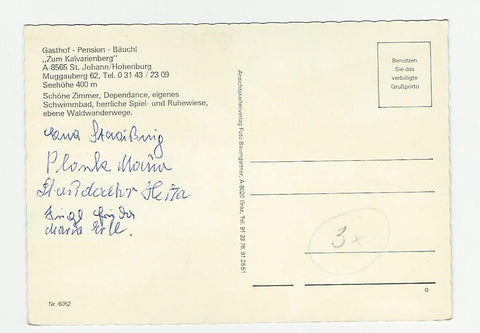 Gasthof - Pension - Bäuchl
„Zum Kalvarienberg"
A-8565 St. Johann/Hohenburg
Muggauberg 62, Tel. 0 31 43 / 23 09
Seehöhe 400 m
Schöne Zimmer, Dependance, eigenes
Schwimmbad, herrliche Spiel- und Ruhewiese,
ebene Waldwanderwege.
Plank Maria
Herta
Maria
Nr. 6052
Ansichtskartenverlag Foto Baumgartner, A-8020 Graz, Tel. 91 33 76, 91 28 51
Benützen
Sie das
verbilligte
Grußporto
3x